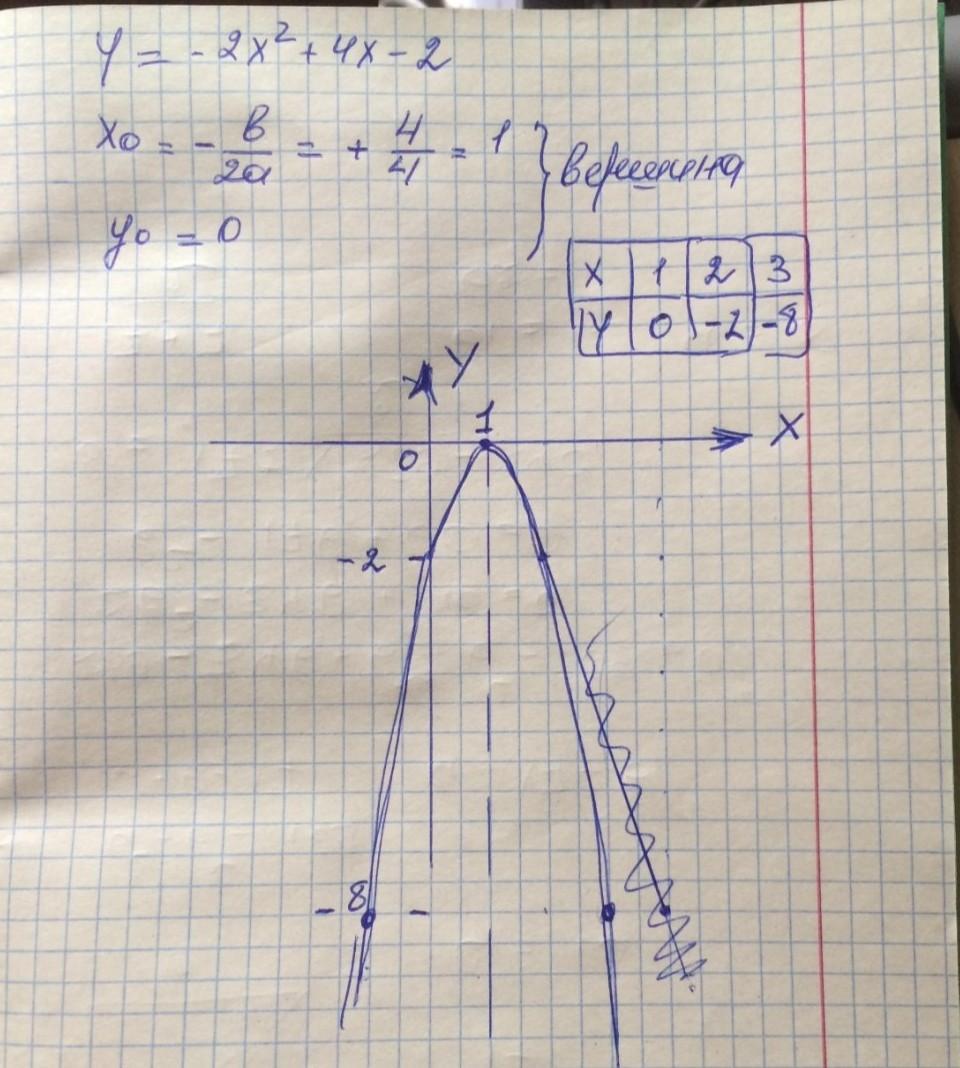 y = -2x² + 4x - 2
x₀ = -в/2a = + 4/4 = 1 } вершина
y₀ = 0
x 1 2 3
y 0 -2 -8
y
1
x
0
-2
-8 -